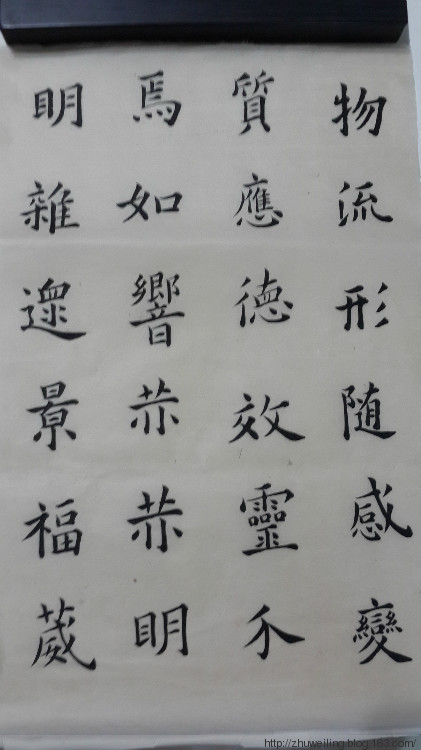 物流形随感變
質應德效靈介
焉如響赫赫明
明雜遝景福葳
http://zhuweiling.blog.163.com/